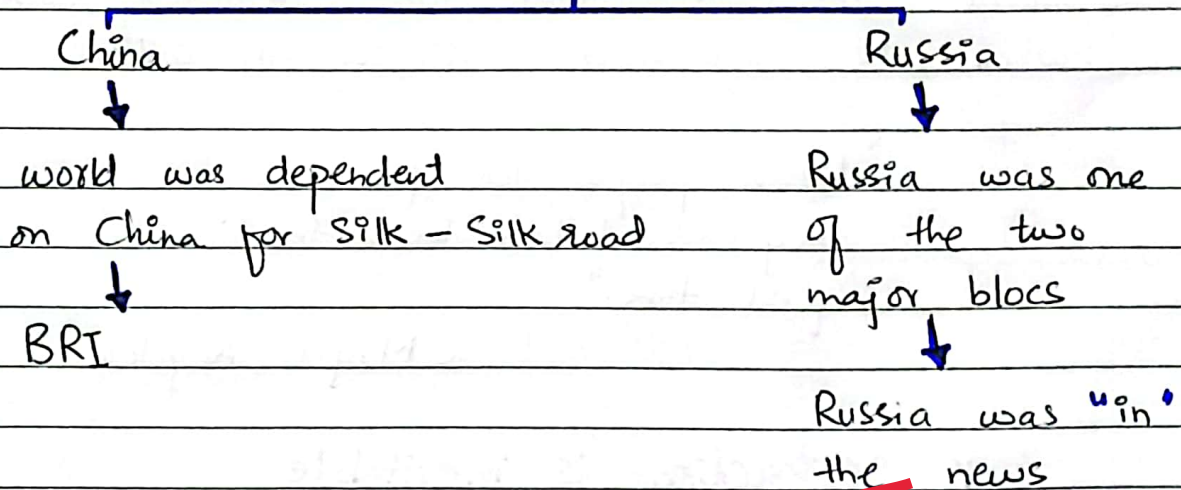 China
Russia
world was dependent
on China for Silk - Silk road
BRI
Russia was one
of the two
major blocs
Russia was "in"
the news